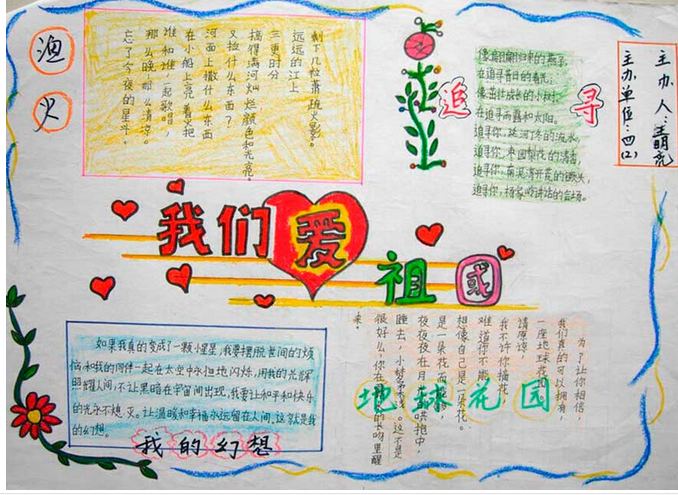 渔火
剩下几粒萧疏火影。
远远的江上
三更时分
搞得满河灿烂颜色和光亮。
又捡什么东西？
河面上撒什么东西
在小船上亮着火把
谁和谁一起歌唱，
那么晚，那么清凉。
忘了今夜的星斗。
追寻
归来的燕子，
在追寻昔日的春光；
像茁壮成长的小树，
在追寻雨露和太阳。
追寻你，延河叮咚的流水，
追寻你，枣园梨花的清香，
追寻你，南泥湾开荒的镢头，
追寻你，杨家岭讲话的会场。
主办人：王明亮
主办单位：四(2)
我们爱
祖国
如果我真的变成了一颗恒星，我要摆脱世间的烦
恼和我的同伴一起在太空中永恒地闪烁，用我的光辉
照耀人间，不让黑暗在宇宙间出现，我要让和平和快乐
的光永不熄灭。让温暖和幸福永远留在人间。这就是我
的幻想。
我的幻想
为了让你相信，
我们真的可以拥有，
一座地球花园
请原谅，
我不许你摘花，
难道你不能
想像自己是一朵花。
是一朵花而
夜夜夜在月抱中
睡去，小梦。这不是
很好么，你在吻里醒
来。
地球花园